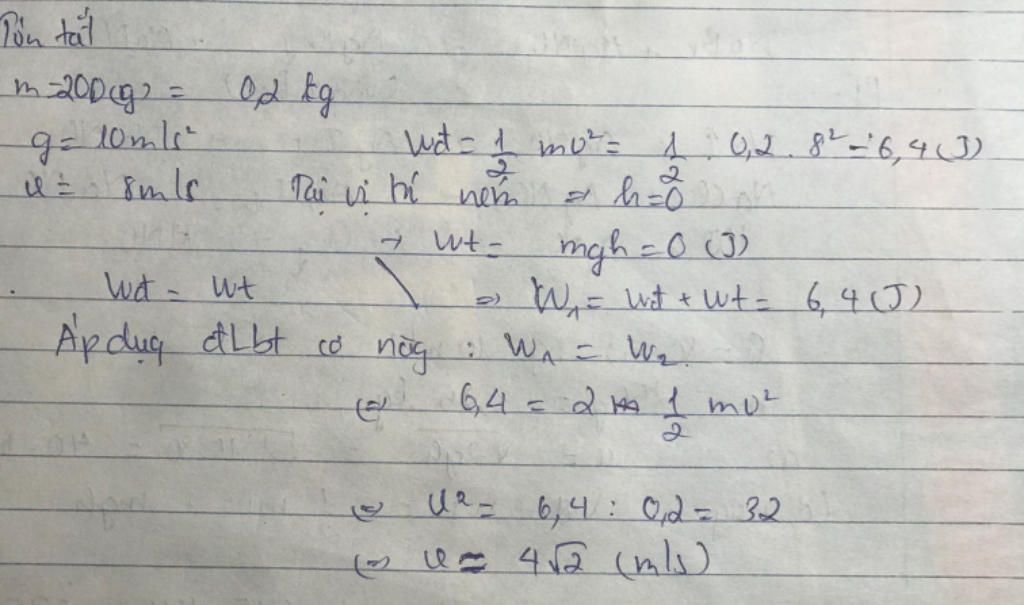 Tóm tắt
m=200(g) = 0,2 kg
g= 10m/s² Wđ = 1/2 mv² = 1/2 . 0,2 . 8² = 6,4 (J)
v = 8m/s Tại vị trí ném ⇒ h=0
→ Wt = mgh = 0 (J)
Wđ = Wt ⇒ W₁ = Wđ + Wt = 6,4 (J)
Áp dụg đLbt cơ năg : W₁ = W₂
⇔ 6,4 = 2 1/2 mv²
⇔ v² = 6,4 : 0,2 = 32
⇔ v = 4√2 (m/s)